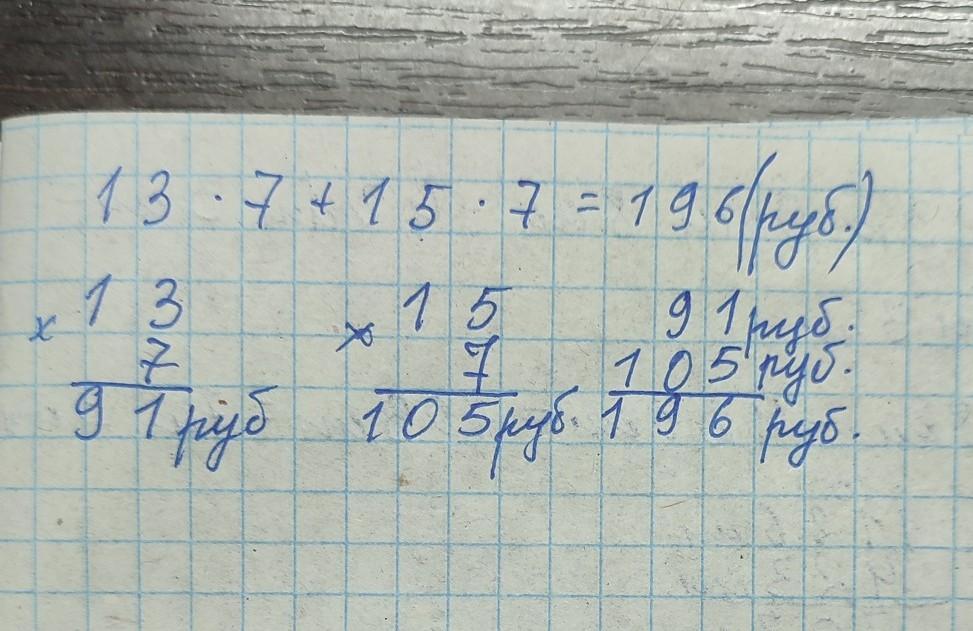 13 · 7 + 15 · 7 = 196 (руб.)
13 15 91 руб.
× 7 × 7 105 руб.
91 руб 105 руб. 196 руб.